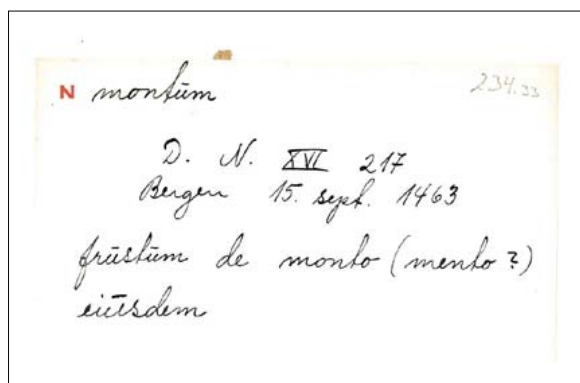 N montūm 234.33
D. N. XVI 217
Bergen 15. sept. 1463
frūstūm de monto (mento ?)
eiūsdem